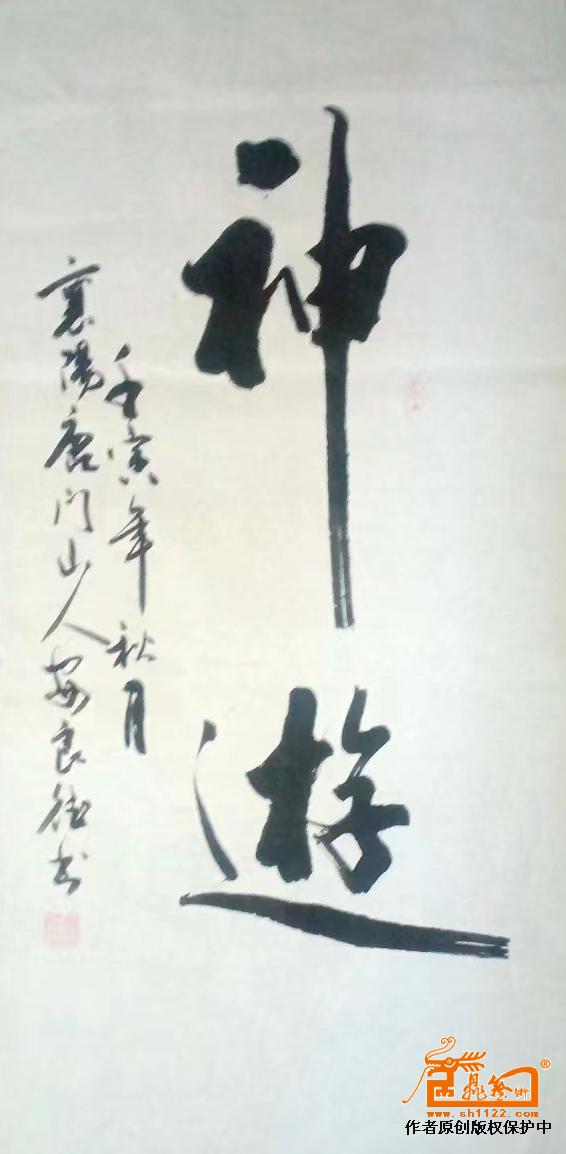 神遊
壬寅年秋月
襄陽鹿门山人安良德书
鼎藝術
®
www.sh1122.com
作者原创版权保护中